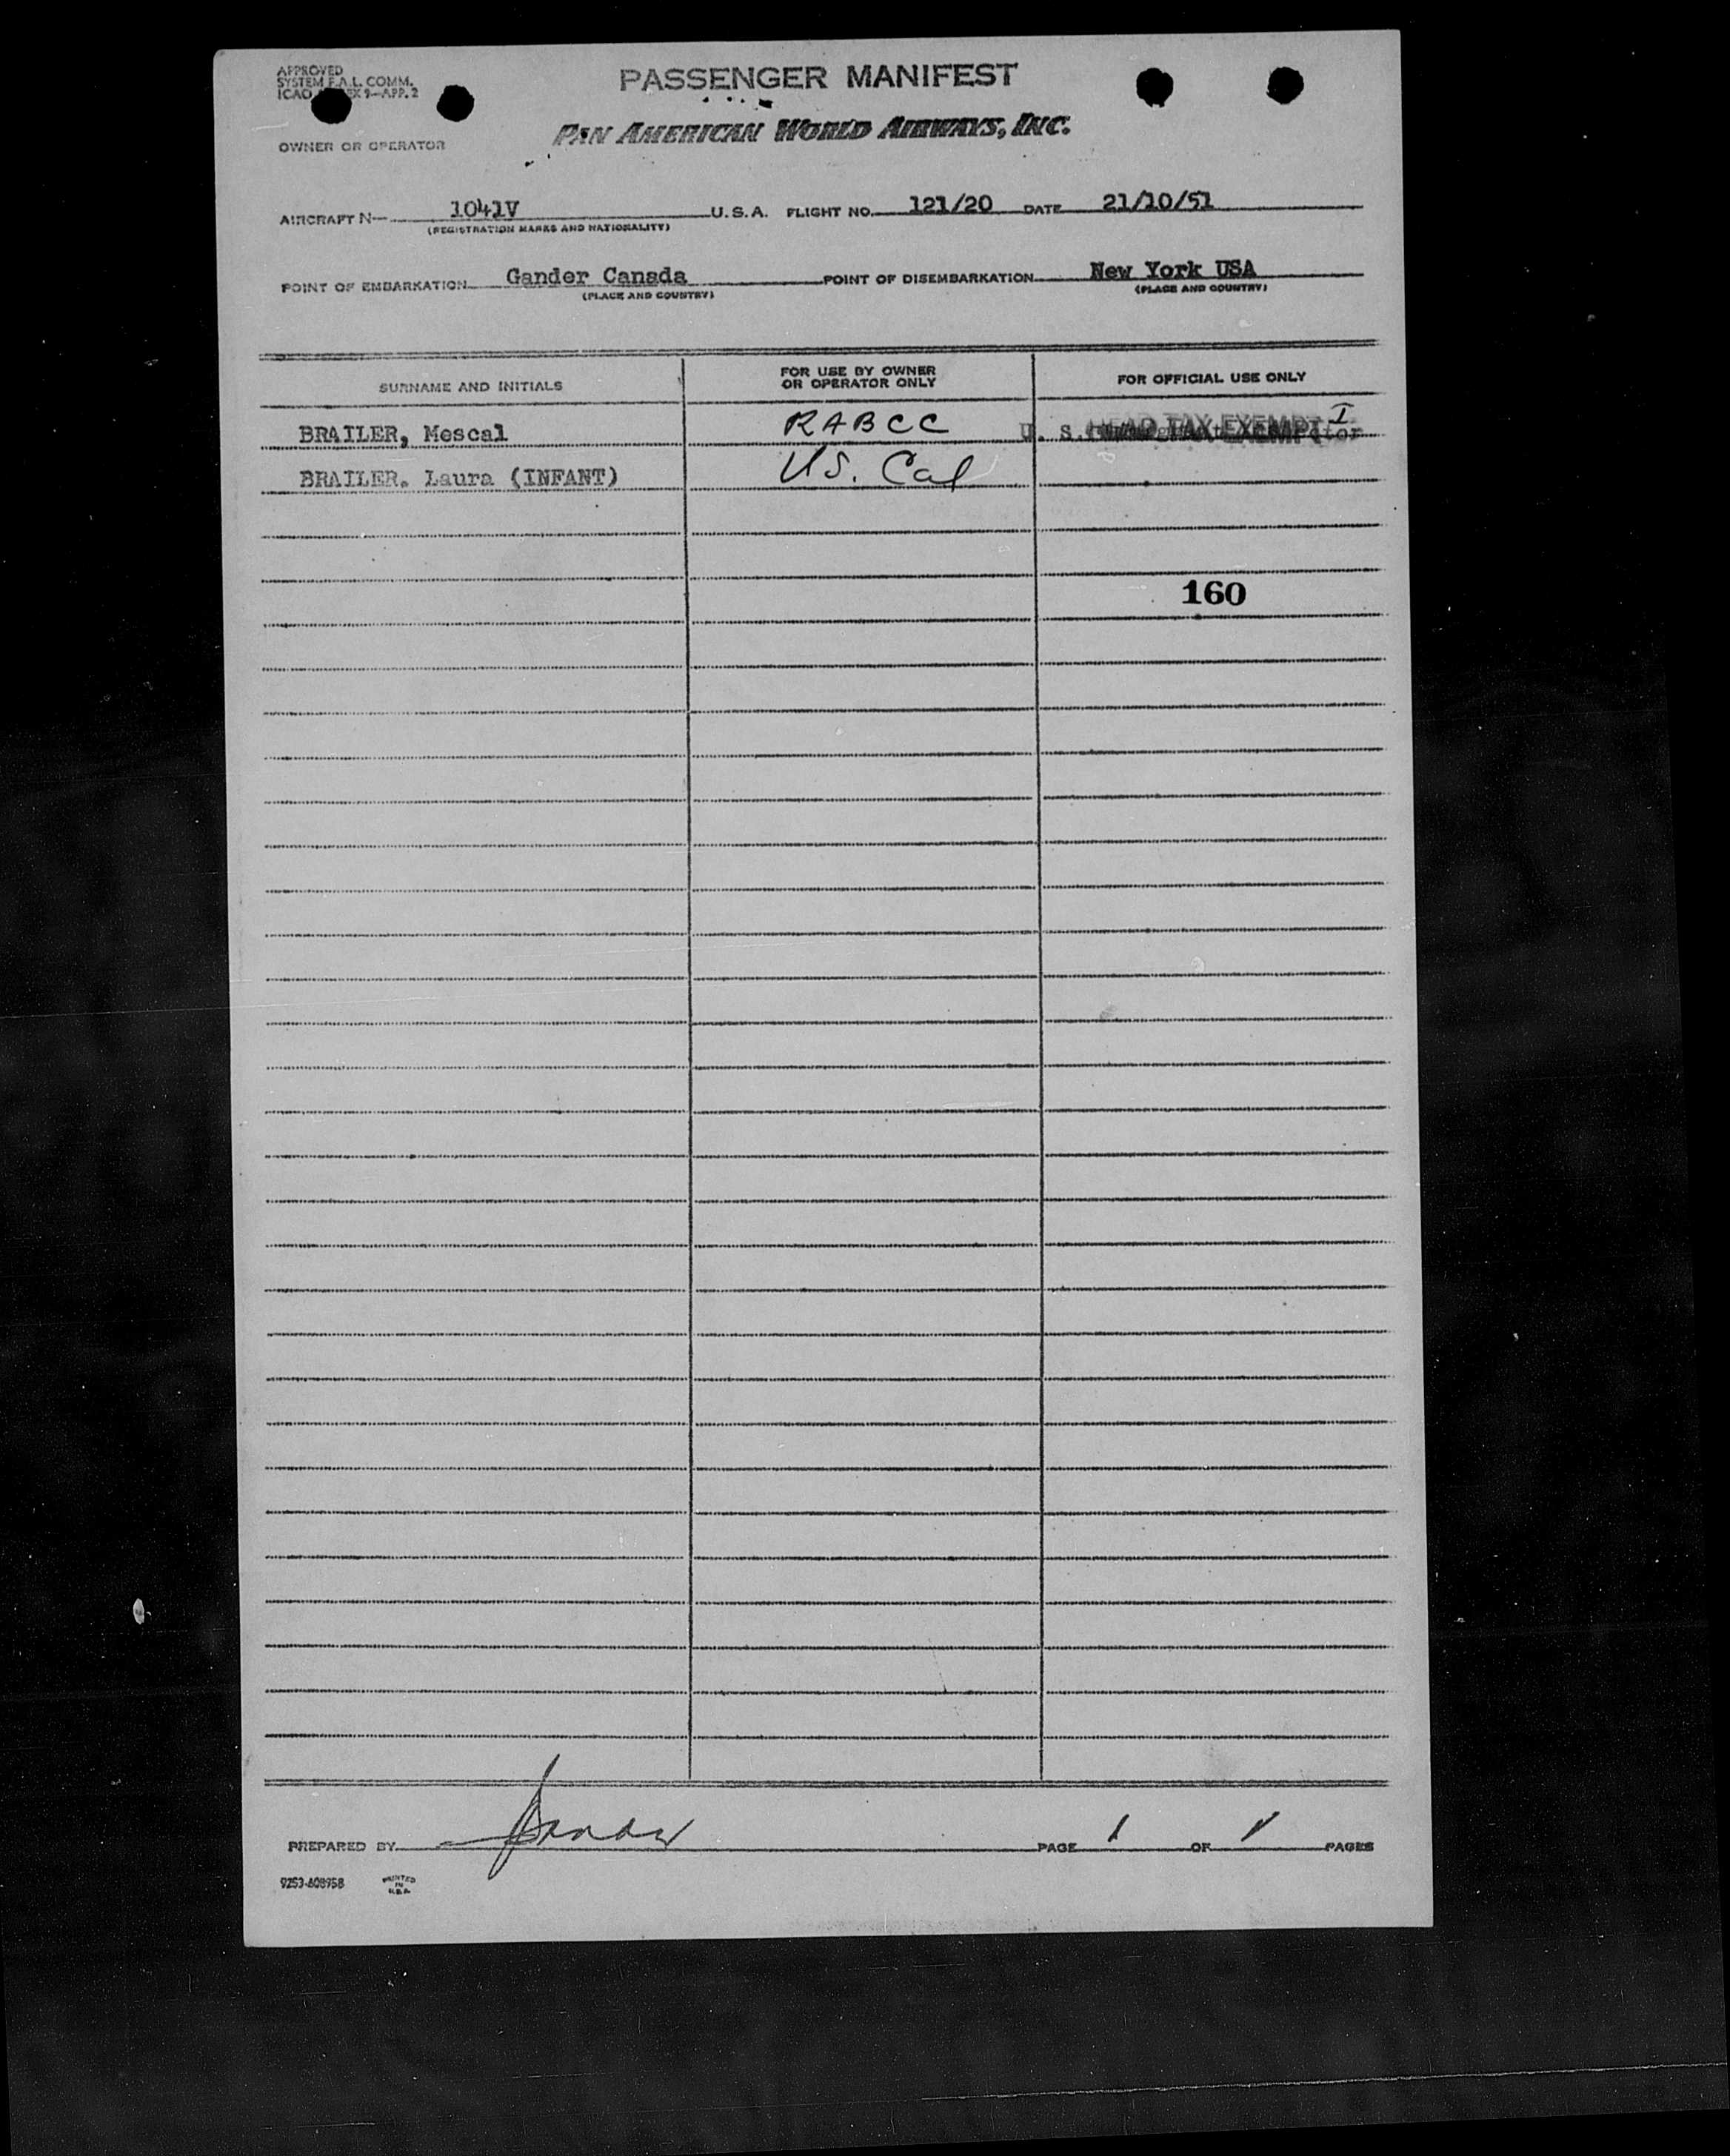 APPROVED
SYSTEM F.A.L. COMM.
ICAO EX 9—APP. 2
PASSENGER MANIFEST
PAN AMERICAN WORLD AIRWAYS, INC.
OWNER OR OPERATOR
AIRCRAFT N— 1041V U.S.A. FLIGHT NO. 121/20 DATE 21/10/51
(REGISTRATION MARKS AND NATIONALITY)
POINT OF EMBARKATION Gander Canada POINT OF DISEMBARKATION New York USA
(PLACE AND COUNTRY) (PLACE AND COUNTRY)
SURNAME AND INITIALS FOR USE BY OWNER OR OPERATOR ONLY FOR OFFICIAL USE ONLY
BRAILER, Mescal RABCC U. S. HEAD TAX EXEMPT I
BRAILER. Laura (INFANT) US. Cal
160
PREPARED BY PAGE 1 OF 1 PAGES
9253-608958 PRINTED IN U.S.A.